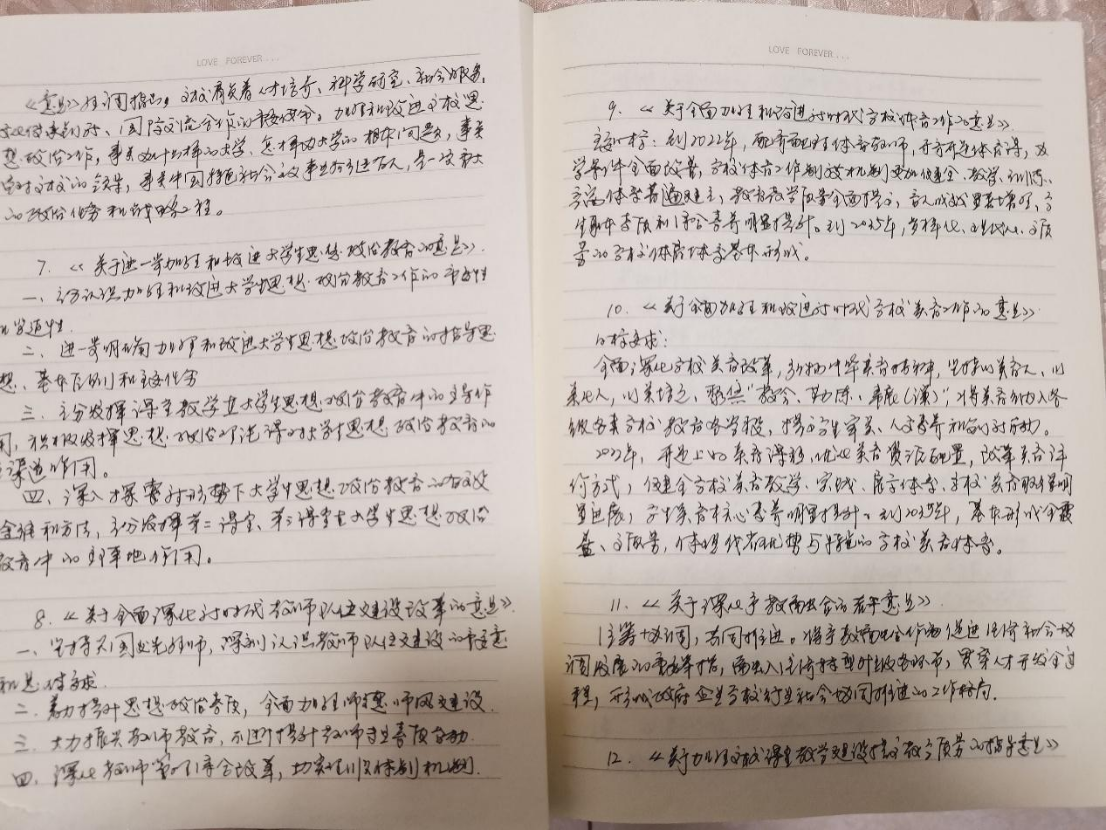 LOVE FOREVER...
《意见》强调指出,高校肩负着人才培养、科学研究、社会服务、
文化传承创新、国际交流合作的重要使命。加强和改进高校思
想政治工作,事关办什么样的大学、怎样办大学的根本问题,事关
党对高校的领导,事关中国特色社会主义事业后继有人,是一项重大
的政治任务和战略工程。
7.《关于进一步加强和改进大学生思想政治教育的意见》.
一、充分认识加强和改进大学生思想政治教育工作的重要性
和紧迫性.
二、进一步明确加强和改进大学生思想政治教育的指导思
想、基本原则和主要任务
三、充分发挥课堂教学在大学生思想政治教育中的主导作
用,积极发挥思想政治理论课对大学生思想政治教育的
主渠道作用。
四、深入探索新形势下大学生思想政治教育的有效
途径和方法,充分发挥第二课堂、第三课堂在大学生思想政治
教育中的作用。
8.《关于全面深化新时代教师队伍建设改革的意见》.
一、坚持兴国必先强师,深刻认识教师队伍建设的重要意
和总体要求.
二、着力提升思想政治素质,全面加强师德师风建设.
三、大力振兴教师教育,不断提升教师专业素质能力.
四、深化教师管理综合改革,切实理顺体制机制.
LOVE FOREVER...
9.《关于全面加强和改进新时代学校体育工作的意见》.
主要目标:到2022年,配齐配强体育教师,开齐开足体育课,办
学条件全面改善,学校体育工作制度机制更加健全,教学、训练、
竞赛体系普遍建立,教育教学质量全面提高,育人成效显著增强,学
生身体素质和综合素养明显提升。到2035年,多样化、现代化、高质
量的学校体育体系基本形成。
10.《关于全面加强和改进新时代学校美育工作的意见》
目标要求:
全面深化学校美育改革,弘扬中华美育精神,坚持以美育人、以
美化人、以美培元,聚焦"教会、勤练、常展(演)",将美育纳入各
级各类学校教育各学段,提高学生审美、人文素养和创新能力。
2022年,开足上好美育课程,优化美育资源配置,改革美育评
价方式,健全学校美育教学、实践、展示体系,学校美育取得明
显进展,学生美育核心素养明显提升。到2035年,基本形成全覆
盖、高质量,体现优势与特色的学校美育体系。
11.《关于深化产教融合的若干意见》.
统筹协调,共同推进。将产教融合作为促进经济社会协
调发展的重要举措,融入经济转型升级各环节,贯穿人才开发全过
程,形成政府企业学校行业社会协同推进的工作格局.
12.《关于加强高校课堂教学建设提高教学质量的指导意见》